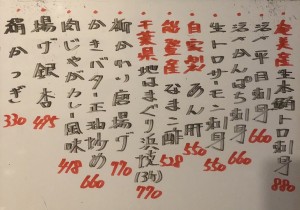 奄美産生本鮪トロ刺身 880
活〆平目刺身 660
活〆かんぱち刺身 660
生トロサーモン刺身 550
自家製あん肝 550
能登産なまこ酢 528
千葉県地はまぐり浜焼(3ケ) 770
鶏かわり唐揚げ 770
かきバター正油炒め 660
肉じゃがカレー風味 418
揚げ銀杏 495
絹かつぎ 330